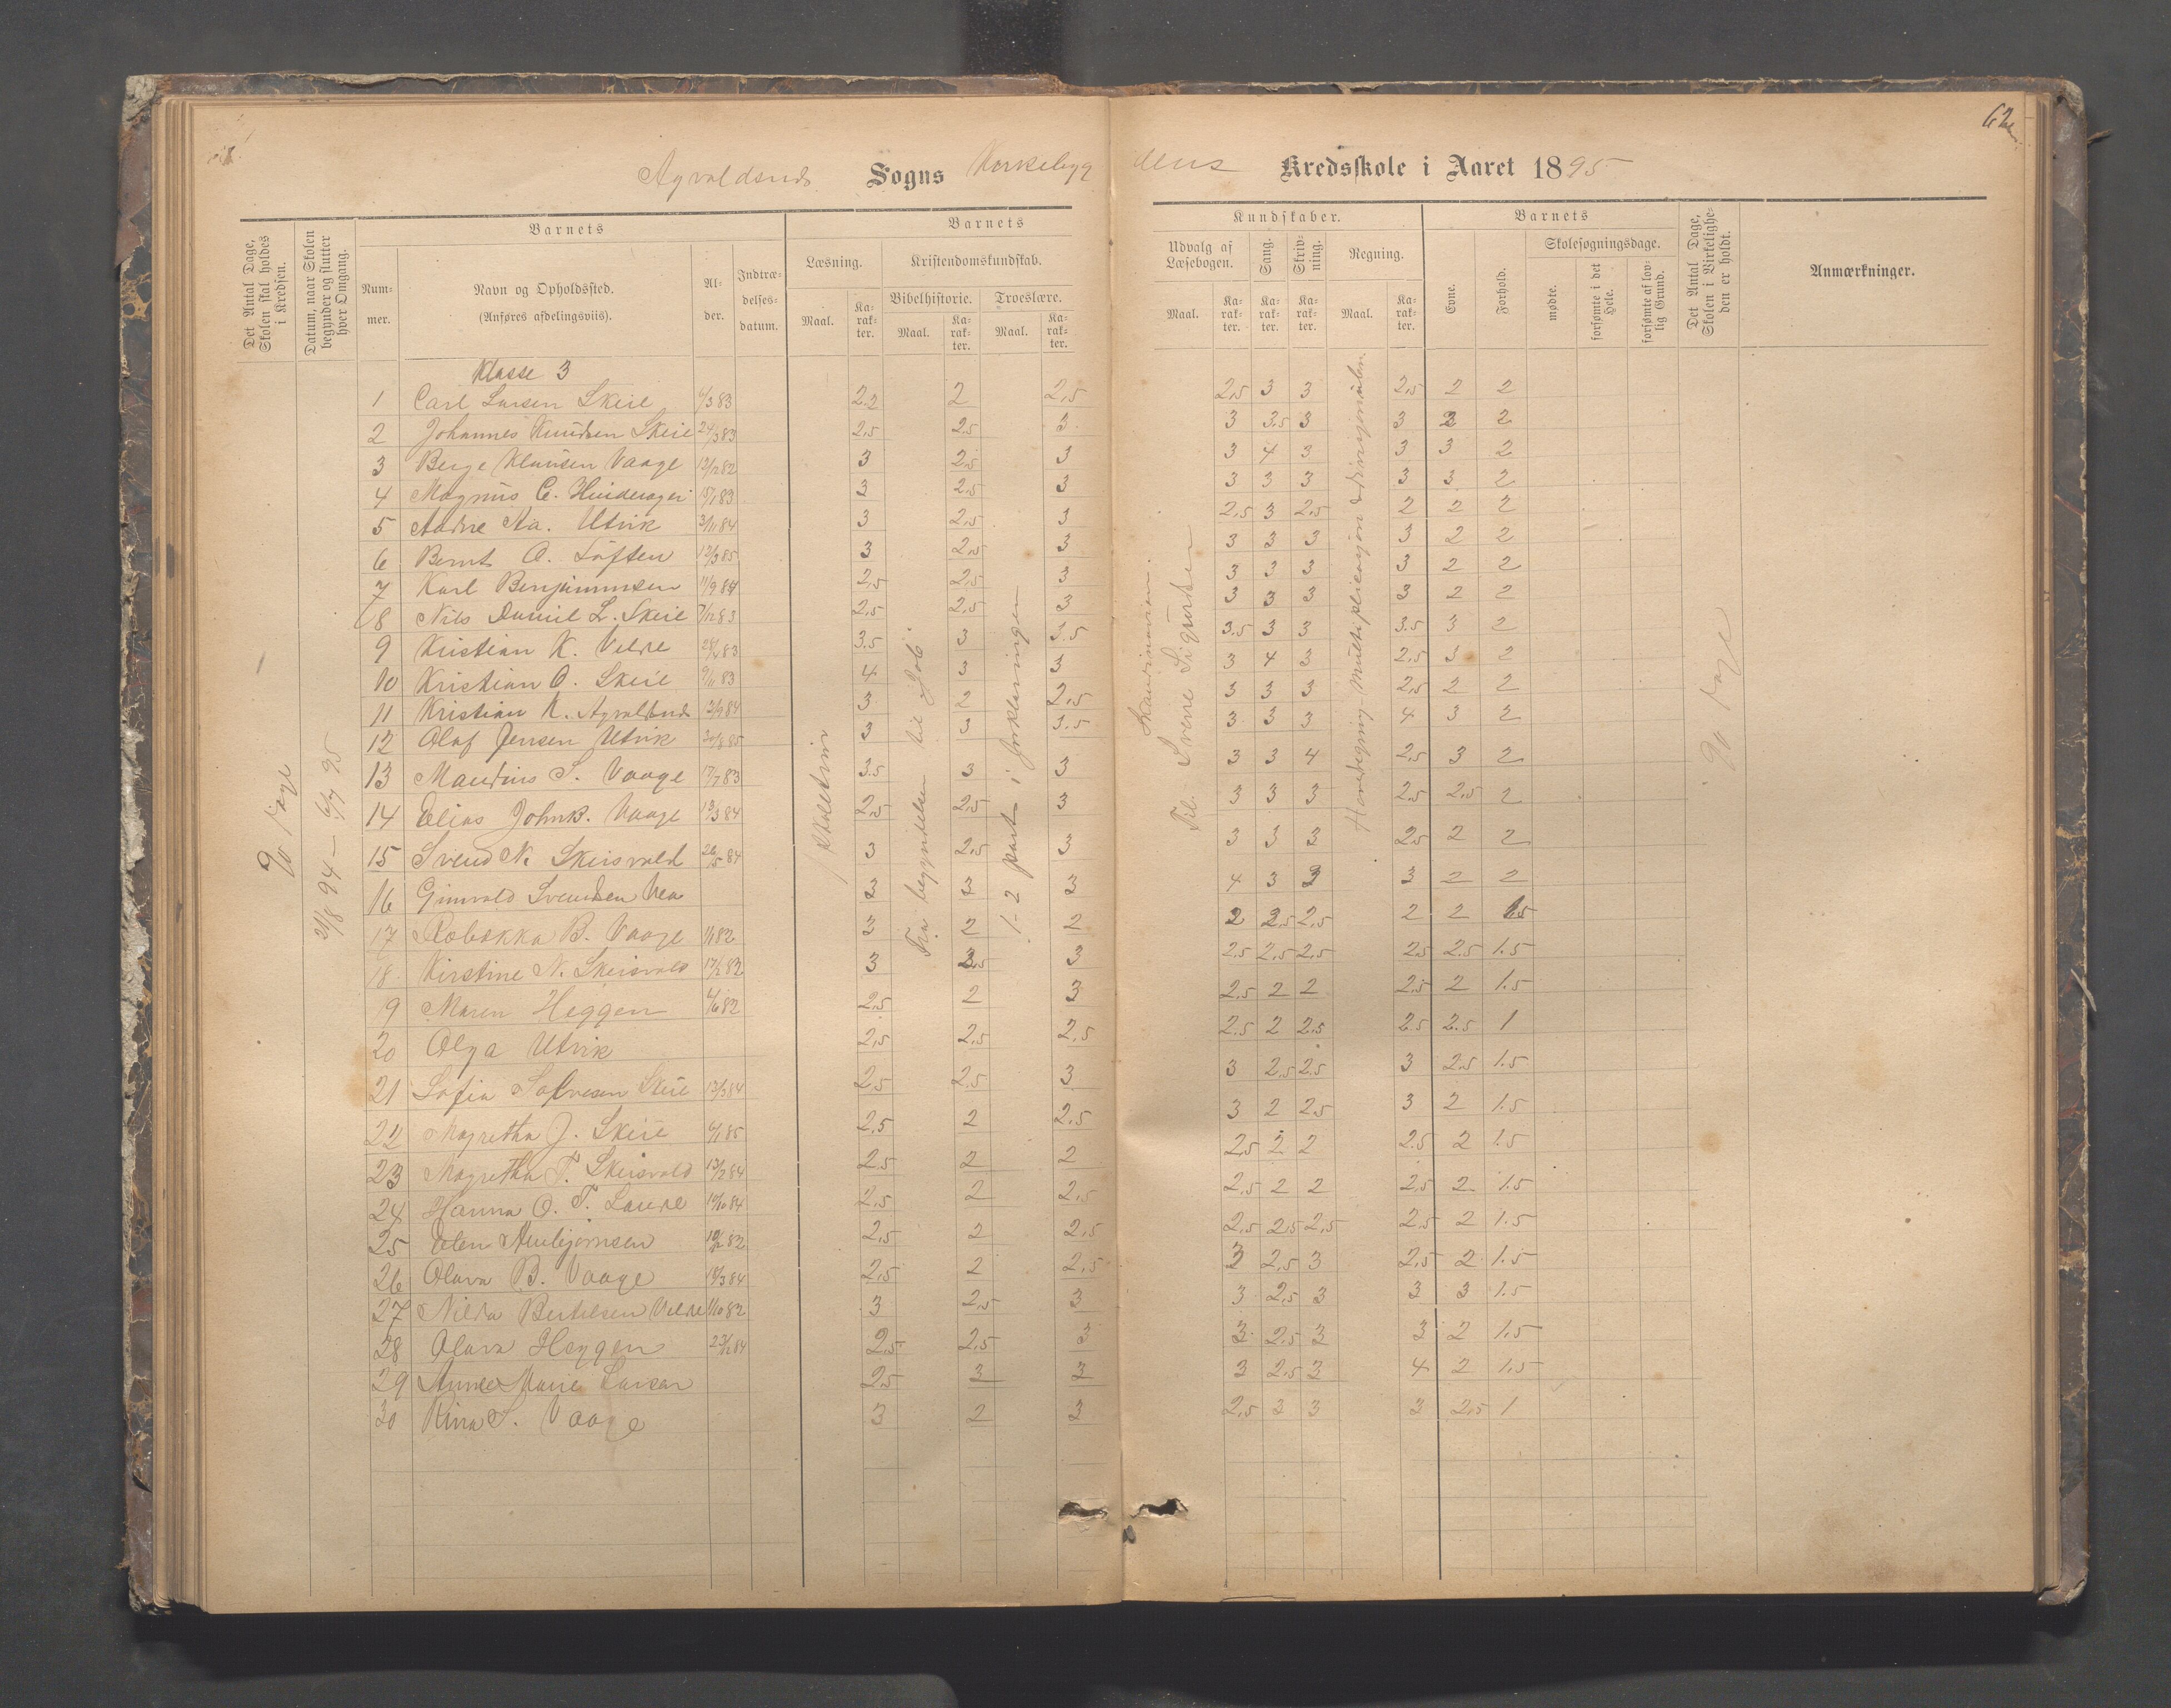 62
Agvaldsnds Sogns Kirkebygdens Kredsskole i Aaret 1895
Det Antal Dage, Skolen skal holdes i Kredsen.
Datum, naar Skolen begynder og slutter hver Omgang.
Barnets
Nummer.
Navn og Opholdssted.
(Anføres afdelingsviis).
Alder.
Indtrædelsesdatum.
Barnets Kundskaber.
Læsning.
Maal.
Karakter.
Kristendomskundskab.
Bibelhistorie.
Maal.
Karakter.
Troeslære.
Maal.
Karakter.
Udvalg af Læsebogen.
Maal.
Karakter.
Sang.
Karakter.
Skrivning.
Karakter.
Regning.
Maal.
Karakter.
Barnets
Evne.
Forhold.
Skolesøgningsdage.
mødte.
forsømte i det Hele.
forsømte af lovlig Grund.
Det Antal Dage, Skolen i Virkeligheden er holdt.
Anmærkninger.
90 Dage
21/8 94 – 6/7 95
Skoletrin
Fra begyndelsen til Job
1-2 part i forklaringen
Skandinavien.
Til Sverre Sigurdsen
Hoveregning
90 Dage
Klasse 3
1 Carl Larsen Skeie 6/3 83 2.2 2 2,5 2,5 3 3 2,5 2 2
2 Johannes Knudsen Skeie 24/3 83 2,5 2.5 3 3 3.5 3 3 3 2
3 Berge Klausen Vaage 13/12 82 3 2,5 3 3 4 3 3 3 2
4 Magnus C. 15/1 83 3 2,5 3 3 3 3 3 3 2
5 Andre Aa. Utvik 3/11 84 3 2,5 3 2,5 3 2,5 2 2 2
6 Bernt O. Toften 13/3 85 3 2,5 3 3 3 3 3 2 2
7 Karl Benjaminsen 11/9 84 2,5 2,5 3 3 3 3 3 2 2
8 Nils Daniel L. Skeie 7/12 83 2,5 2,5 3 3 3 3 3 2 2
9 Kristian K. Velde 28/2 83 3.5 3 3.5 3.5 3 3 3.5 3 2
10 Kristian O. Skeie 9/11 83 4 3 3 3 4 3 2,5 3 2
11 Kristian K. Agvaldsnds 12/9 84 3 2 2,5 3 3 3 2,5 2 2
12 Olaf Jensen Utvik 30/8 85 3 3 3.5 3 3 3 4 3 2
13 Mandius S. Vaage 17/7 83 3.5 3 3 3 3 4 2,5 3 2
14 Elias JohnB. Vaage 13/3 84 2,5 2,5 3 3 3 3 2,5 2,5 2
15 Svend N. Skeisvold 26/5 84 3 2,5 3 3 3 3 2,5 2 2
16 Gunvald Svendsen Vea 3 3 3 4 3 3 3 2 2
17 Rebekka B. Vaage 1/1 82 3 2 2 2 2.5 2,5 2 2 1.5
18 Kirstine N. Skeisvold 17/2 82 3 2.5 3 2.5 2,5 2,5 2,5 2.5 1.5
19 Maren Heggen 4/6 82 2,5 2 3 2,5 2 2 2,5 2 1.5
20 Olga Utvik 2,5 2,5 2,5 2.5 2 2.5 2.5 2.5 1
21 Sofia Solvesen Skeie 13/3 84 2,5 2,5 3 3 2.5 2.5 3 2.5 1.5
22 Magretha J. Skeie 6/1 85 2,5 2 2,5 3 2 2,5 3 2 1.5
23 Magretha T. Skeisvold 13/2 84 2.5 2 2 2,5 2 2 2.5 2 1.5
24 Hanna O. T. Lande 19/10 84 2,5 2 2,5 2,5 2 2 2,5 2 1.5
25 Elen Arnbjørnsen 10/12 82 2,5 2 2,5 2,5 2,5 2,5 2,5 2 1.5
26 Olava B. Vaage 18/3 84 2,5 2 2,5 3 2,5 3 2,5 2 1.5
27 Nilda Bertelsen Velde 1/10 82 3 2,5 3 3 2,5 3 3 3 1.5
28 Olava Heggen 23/12 84 2,5 2,5 3 3 2,5 3 3 2 1.5
29 Anne Marie Larsen 2,5 3 3 3 2,5 3 4 2 1.5
30 Kina S. Vaage 3 2 3 2,5 3 3 3 2,5 1